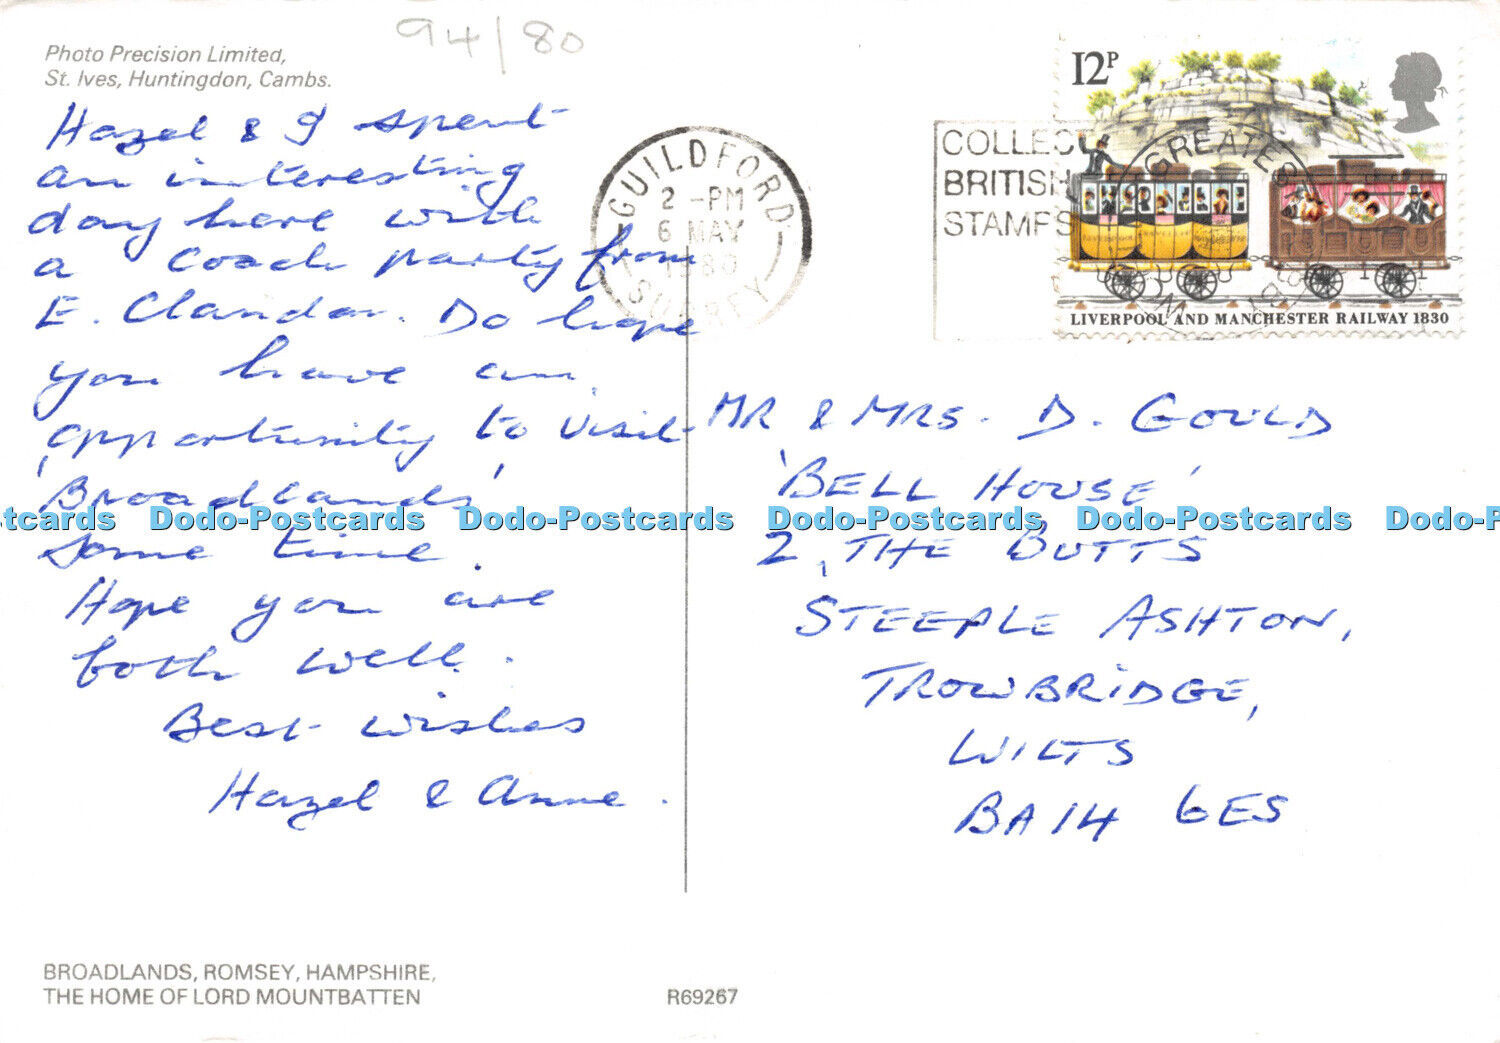 94/80
Photo Precision Limited,
St. Ives, Huntingdon, Cambs.
Hazel & I spent
an interesting
day here with
a coach party from
E. Clandon. Do hope
you have an
opportunity to visit
'Broadlands'
some time.
Hope you are
both well.
Best wishes
Hazel & Anne.
GUILDFORD
2 -PM
6 MAY
1980
SURREY
COLLECT
BRITISH
STAMPS
GREATES
12P
LIVERPOOL AND MANCHESTER RAILWAY 1830
MR & MRS. D. GOULD
'BELL HOUSE'
2, THE BUTTS
STEEPLE ASHTON,
TROWBRIDGE,
WILTS
BA14 6ES
tcards Dodo-Postcards Dodo-Postcards Dodo-Postcards Dodo-Postcards Dodo-P
BROADLANDS, ROMSEY, HAMPSHIRE,
THE HOME OF LORD MOUNTBATTEN
R69267